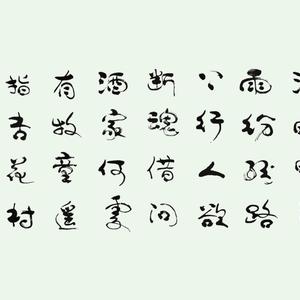 雨纷纷路
上行人欲
断魂借问
酒家何處
有牧童遥
指杏花村